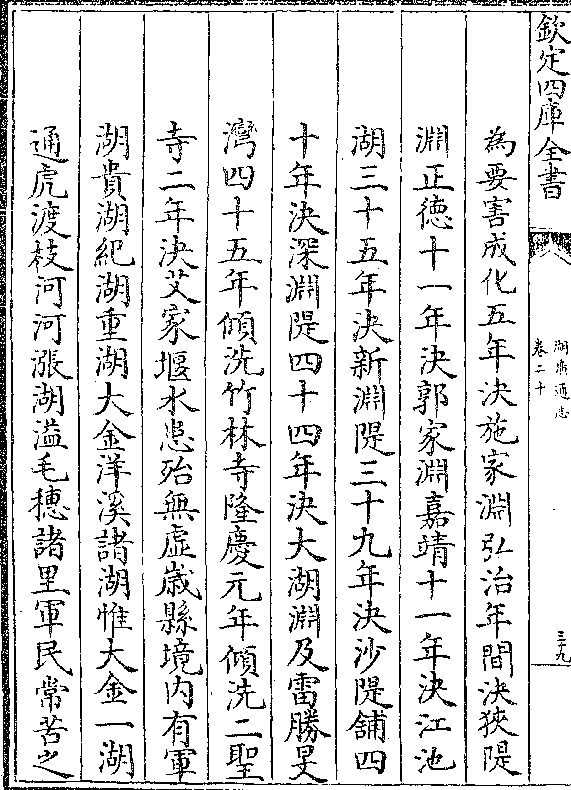 欽定四庫全書
湖廣通志
卷二十
三十九
為要害成化五年決施家淵弘治年間決狹隄
淵正德十一年決郭家淵嘉靖十一年決江池
湖三十五年決新淵隄三十九年決沙隄舖四
十年決深淵隄四十四年決大湖淵及雷勝旻
灣四十五年傾洗竹林寺隆慶元年傾洗二聖
寺二年決艾家堰水患殆無虛歲縣境内有軍
湖貴湖紀湖重湖大金洋溪諸湖惟大金一湖
通虎渡枝河河漲湖溢毛穗諸里軍民常苦之